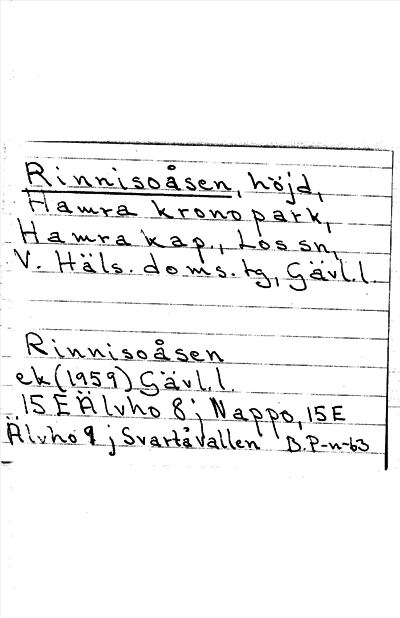 Rinnisoåsen, höjd,
Hamra kronopark,
Hamra kap., Los sn,
V. Häls. doms. tg, Gävl.l.
Rinnisoåsen
ek (1959) Gävl.l.
15 E Älvho 8 j Nappo, 15 E
Älvho 9 j Svartåvallen B.P-n-63